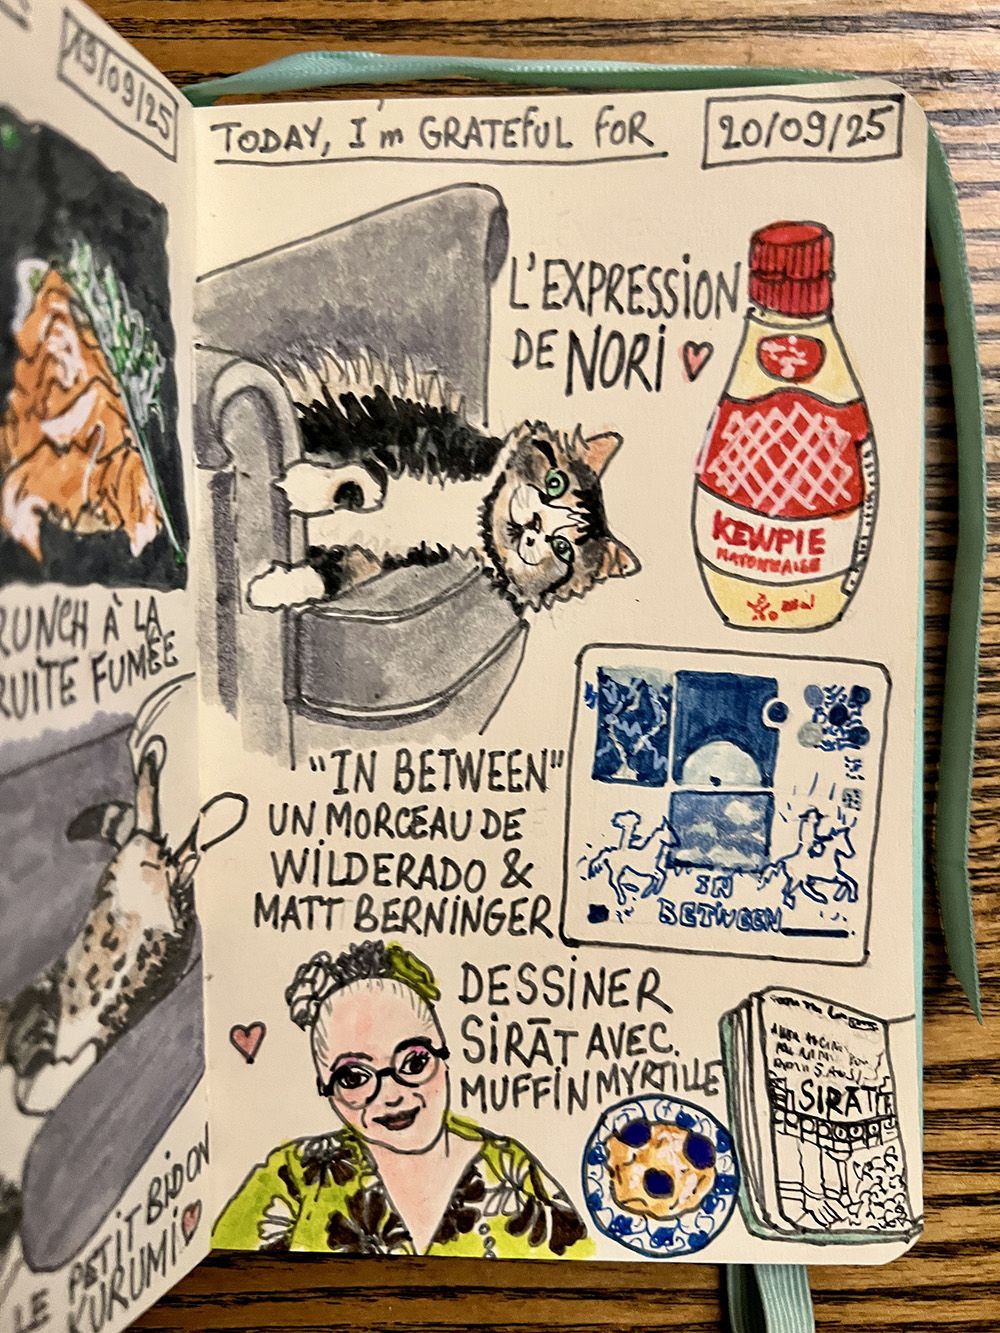 19/09/25
RUNCH À LA
RUITE FUMÉE
LE PETIT BIDON
KURUMI
TODAY, I'm GRATEFUL FOR
20/09/25
L'EXPRESSION
DE NORI
KEWPIE
MAYONNAISE
"IN BETWEEN"
UN MORCEAU DE
WILDERADO &
MATT BERNINGER
IN
BETWEEN
DESSINER
SIRĀT AVEC
MUFFIN MYRTILLE
SIRĀT